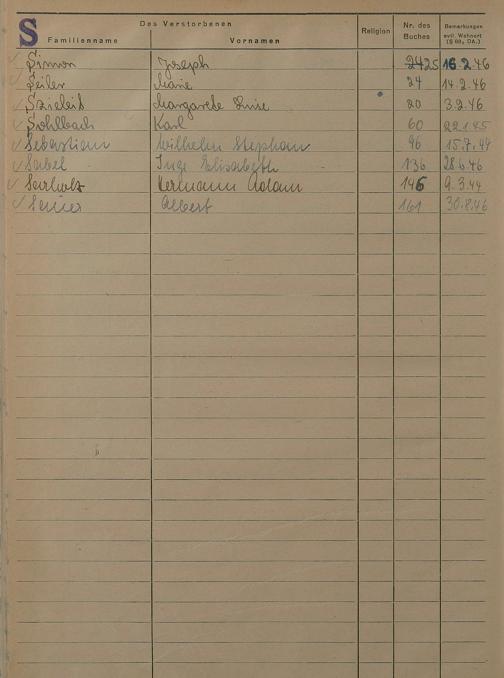 S
Des Verstorbenen
Familienname Vornamen Religion Nr. des Buches Bemerkungen evtl. Wohnort (§ 69, DA.)
Simon Joseph 24 25 16.2.46
Seiler Marie 24 14.2.46
Szideit Margarete Luise 20 3.2.46
Sohlbach Karl 60 22.1.45
Sebastian Wilhelm Stephan 96 15.7.44
Sabel Inge Elisabeth 136 28.6.46
Hermann Adam 146 9.3.44
Albert 161 30.8.46